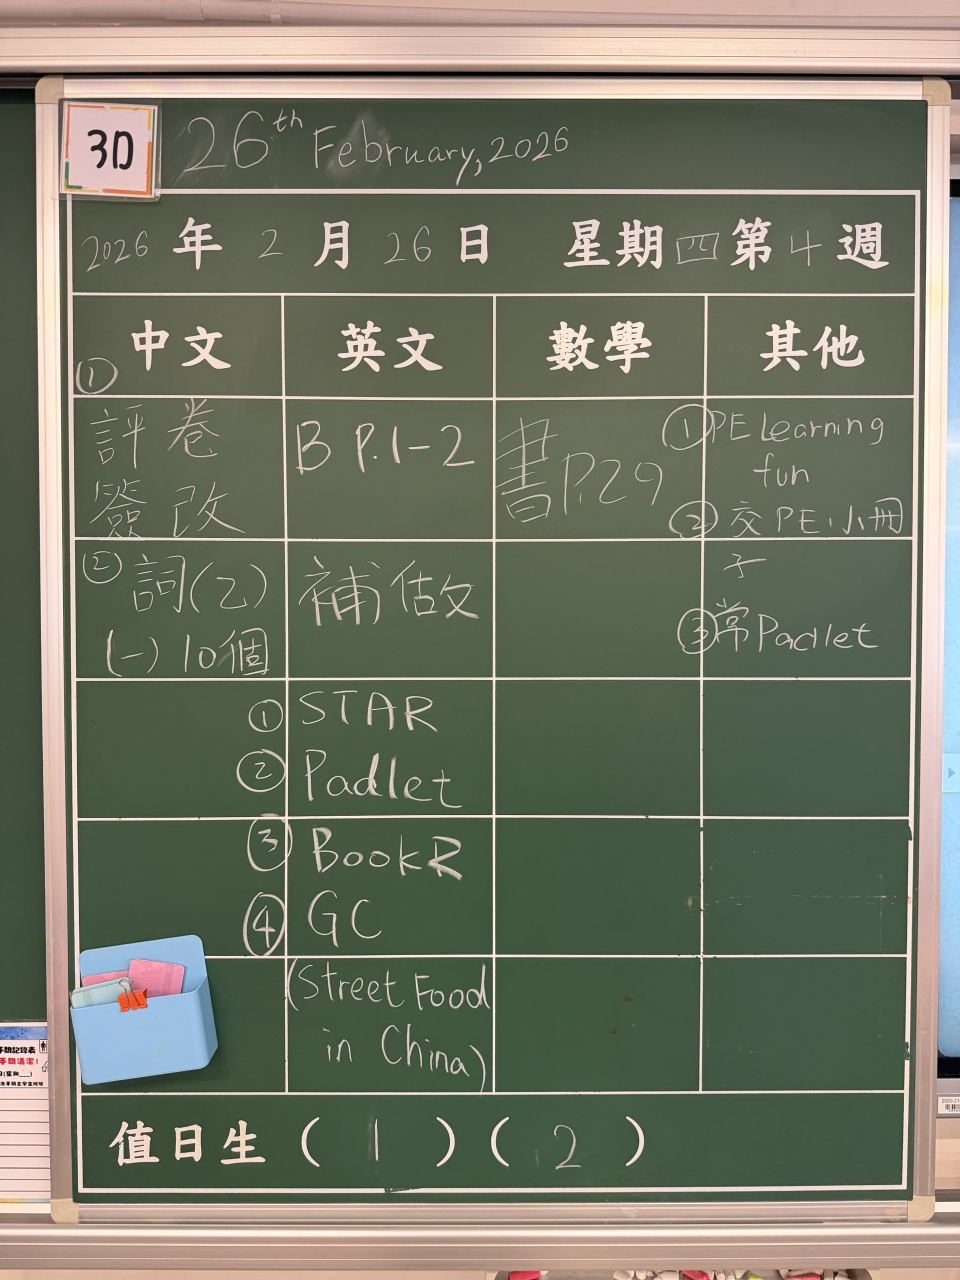 3D
26th February, 2026
2026 年 2 月 26 日 星期 四 第 4 週
中文 英文 數學 其他
① 評卷
簽改
② 詞(乙)
(一) 10個
B P.1-2
補估文
① STAR
② Padlet
③ BookR
④ GC
(Street Food
in China)
書P.29
① PE Learning
fun
② 交PE小冊
子
③ 常Padlet
值日生 ( 1 ) ( 2 )